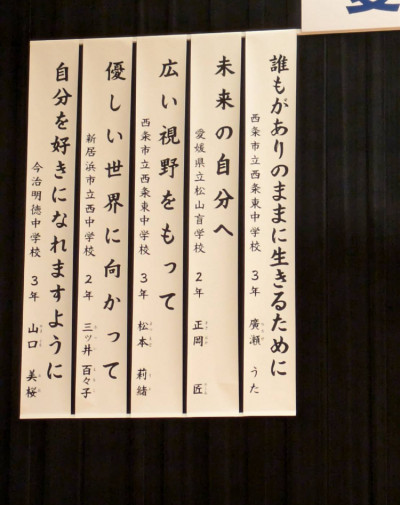 誰もがありのままに生きるために
西条市立西条東中学校 3年 廣瀬 うた
未来の自分へ
愛媛県立松山盲学校 2年 正岡 匠
広い視野をもって
西条市立西条東中学校 3年 松本 莉緒
優しい世界に向かって
新居浜市立西中学校 2年 三ッ井 百々子
自分を好きになれますように
今治明徳中学校 3年 山口 美桜